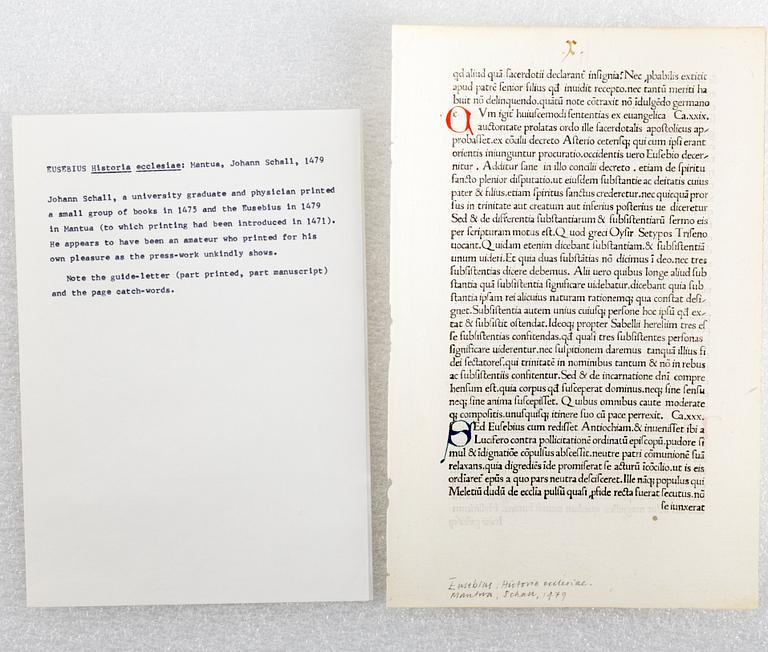 EUSEBIUS Historia ecclesiae: Mantua, Johann Schall, 1479
Johann Schall, a university graduate and physician printed
a small group of books in 1475 and the Eusebius in 1479
in Mantua (to which printing had been introduced in 1471).
He appears to have been an amateur who printed for his
own pleasure as the press-work unkindly shows.
Note the guide-letter (part printed, part manuscript)
and the page catch-words.
X
qđ aliud quā sacerdotii declarant insignia? Nec ꝓbabilis extitit
apud patrē senior filius qđ inuidit recepto. nec tantū meriti ha
buit nō delinquendo. quātū note cōtraxit nō īdulgēdo germano
QVm igit̄ huiuscemodi sententias ex euangelica Ca.xxix.
auctoritate prolatas ordo ille sacerdotalis apostolicus ap-
probasset. ex cōcilii decreto Asterio ceterisq; qui cum ipsi erant
orientis iniunguntur procuratio. occidentis uero Eusebio decer-
nitur. Additur sane in illo concilii decreto. etiam de spiritu
sancto plenior disputatio. ut eiusdem substantie ac deitatis cuius
pater & filius. etiam spiritus sanctus crederetur. nec quicquā pror
sus in trinitate aut creatum aut inferius posterius ue diceretur
Sed & de differentia substantiarum & subsistentiarū sermo eis
per scripturam motus est. Quod greci Oysir Setypos Triseno
uocant. Quidam etenim dicebant substantiam. & subsistentiā
unum uideri. Et quia duas substātias nō dicimus ī deo. nec tres
subsistentias dicere debemus. Alii uero quibus longe aliud sub
stantia quā subsistentia significare uidebatur. dicebant quia sub
stantia ipsam rei alicuius naturam rationemq; qua constat desi-
gnet. Subsistentia autem unius cuiusq; persone hoc ipsū qđ ex-
tat & subsistit ostendat. Ideoq; propter Sabellii heresiim tres es
se subsistentias confitendas. qđ quasi tres subsistentes personas
significare uiderentur. nec suspitionem daremus tanquā illius fi
dei sectatores. qui trinitatē in nominibus tantum & nō in rebus
ac subsistentiis confitentur. Sed & de incarnatione dn̄i compre
hensum est. quia corpus qđ susceperat dominus. neq; sine sensu
neq; sine anima suscepisset. Quibus omnibus caute moderate
q; compositis. unusquisq; itinere suo cū pace perrexit. Ca.xxx.
SEd Eusebius cum redisset Antiochiam. & inuenisset ibi a
Lucifero contra pollicitationē ordinatū episcopū. pudore si
mul & īdignatiōe cōpulsus abscessit. neutre patri cōmunionē suā
relaxans. quia digrediēs īde promiserat se acturū īcōcilio. ut is eis
ordiaret̄ ep̄us a quo pars neutra descisceret. Ille nāq; populus qui
Meletiū dudū de ecclia pulsū quasi ꝓfide recta fuerat secutus. nō
se iunxerat
Eusebius: Historia ecclesiae.
Mantua, Schall, 1479